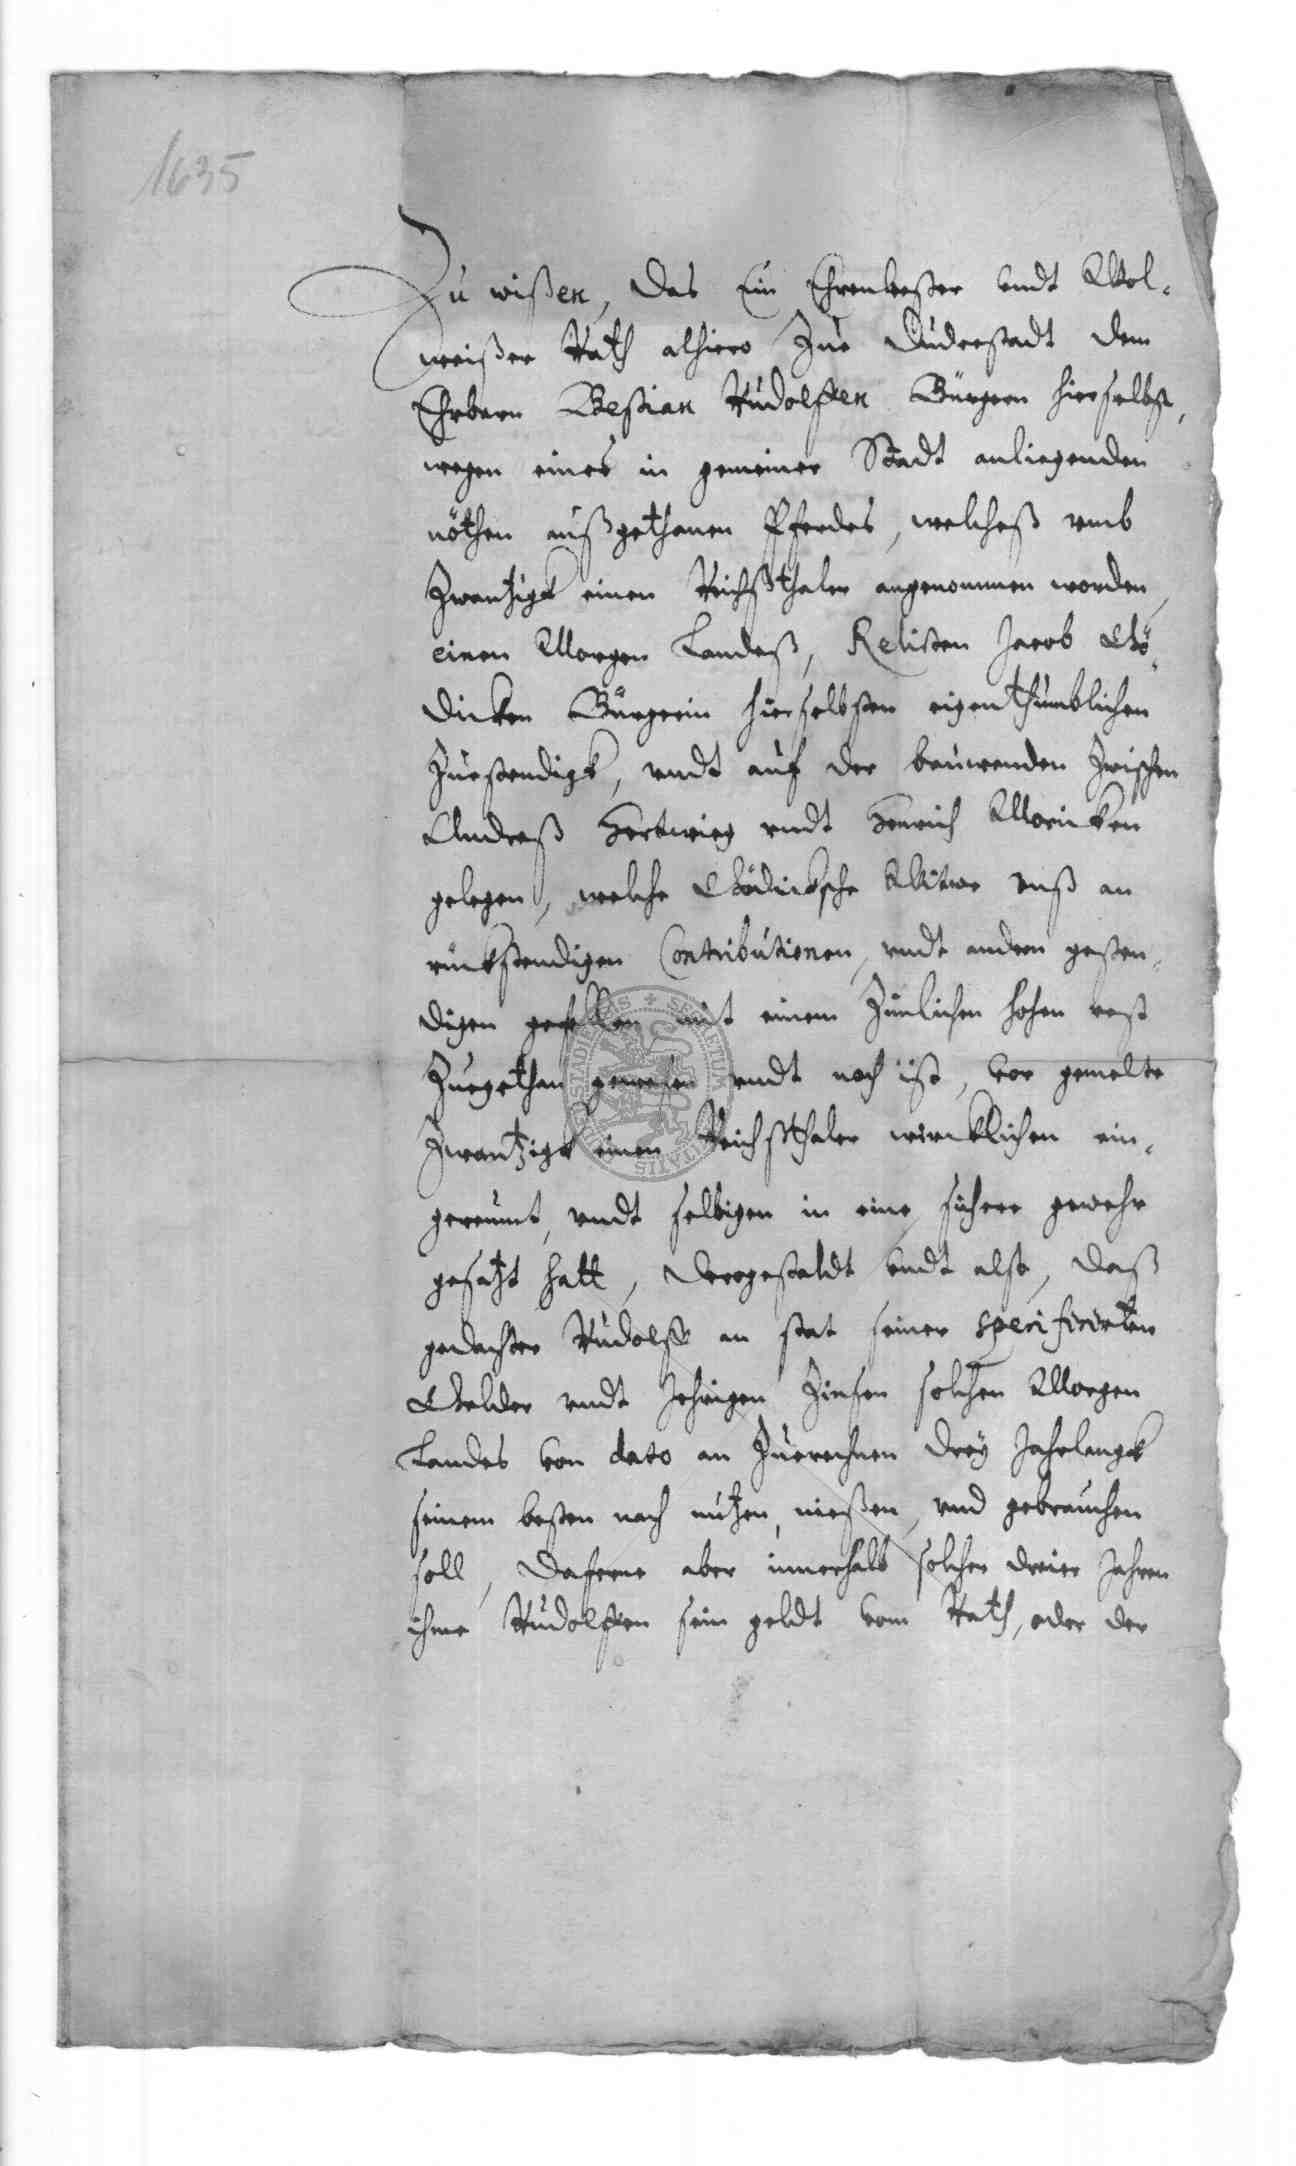 1635
Zu wißen, das Ein Ehrenvester vndt Wol-
weißer Rath alhiero Zue Duderstadt dem
Ehrbarn Bestian Rudolffen Bürgern hierselbst,
wegen eines in gemeiner Stadt anliegenden
nöthen außgethanen Pferdes, welcheß vmb
Zwantzigk einen Reichßthaler angenommen worden
einen Morgen Landeß, Relicten Jacob Gö-
dicken Bürgerin hierselbsten eigenthumblichen
Zuestendigk, vndt auf der beuwenden Zwischen
Andreß Hertwieg vndt Henrich Moricken
gelegen, welche Gödickische Witwe vnß an
rückstendigen Contributionen, vndt andern gesten-
digen gefellen mit einem Zimlichen hohen rest
Zuegethan gewesen vndt noch ist, vor gemelte
Zwantzigk einen Reichßthaler wircklichen ein-
gereumt, vndt selbigen in eine sichere gewehr
gesatzt hatt, Dergestaldt vndt also, daß
gedachter Rudolff an stat seiner specificirten
Gelder vndt Jehrigen Zinsen solchen Morgen
Landes von dato an Zuerechnen drey Jahrlangk
seinem besten nach nutzen, nießen, vnd gebrauchen
soll, Daferne aber innerhalb solcher dreier Jahren
ihme Rudolffen sein geldt vom Rath, oder der
SECRETUM